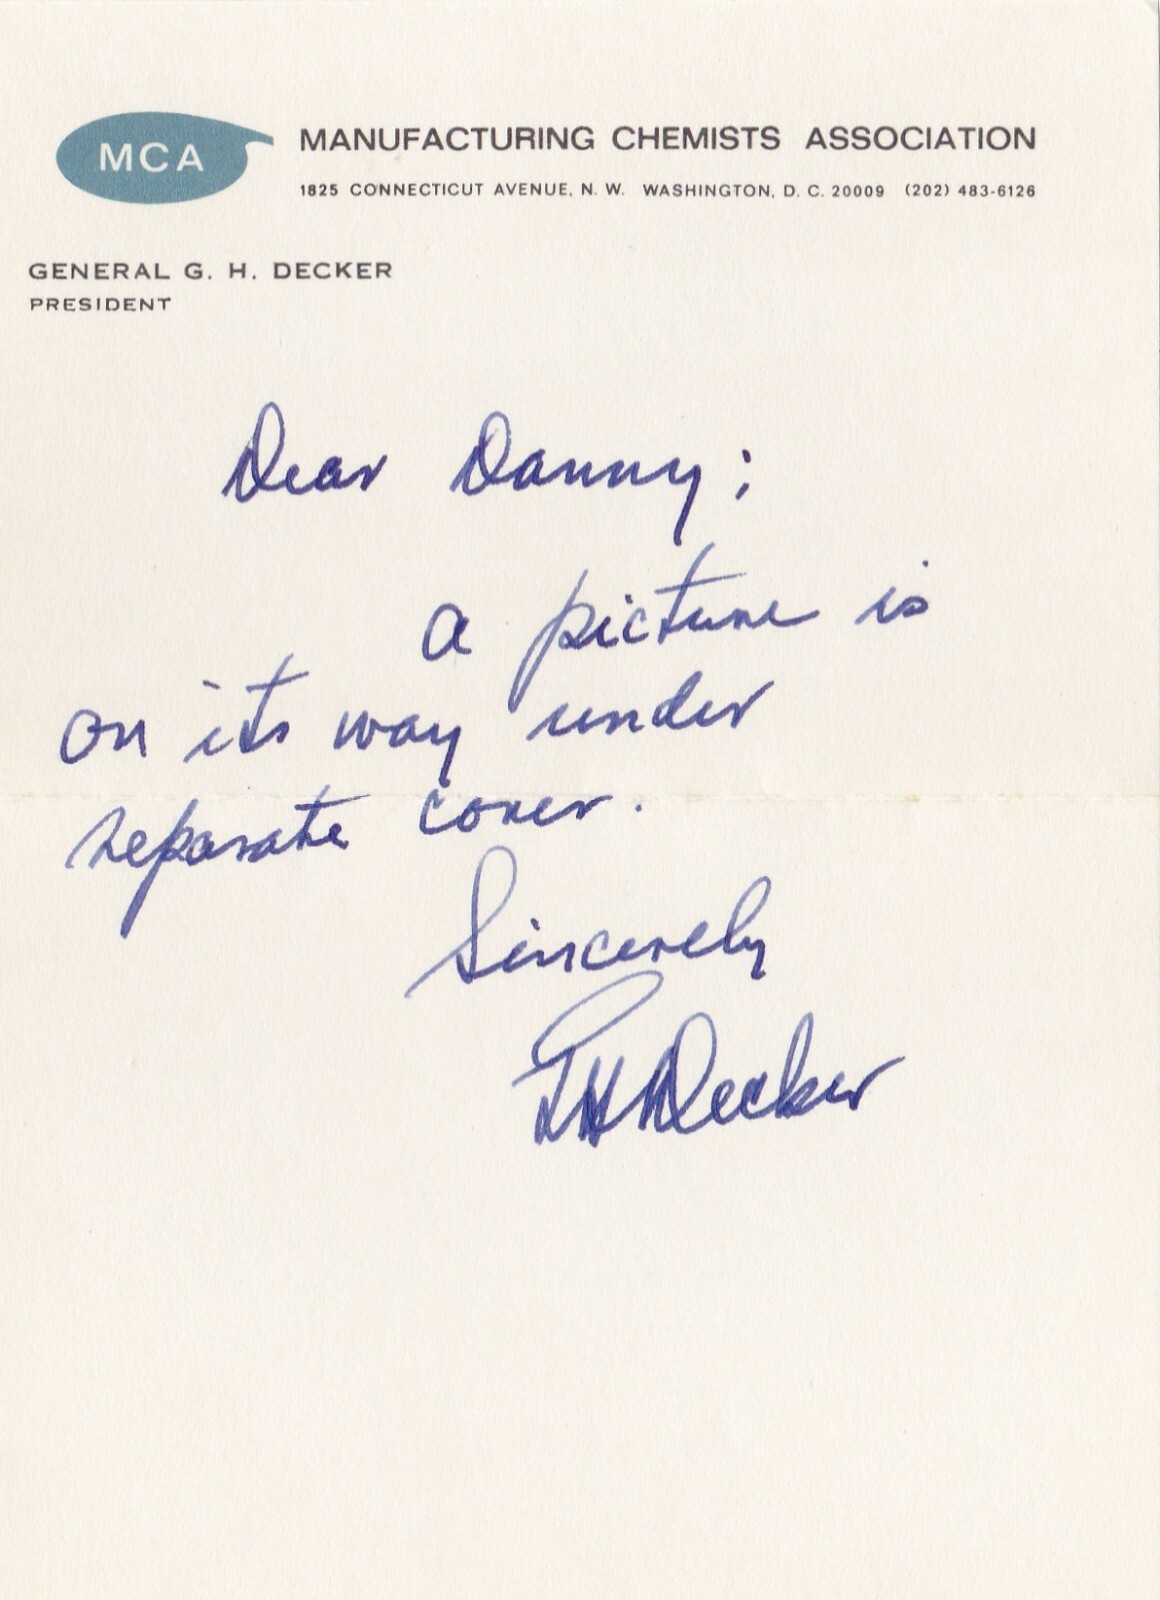 MCA
MANUFACTURING CHEMISTS ASSOCIATION
1825 CONNECTICUT AVENUE, N. W. WASHINGTON, D. C. 20009 (202) 483-6126
GENERAL G. H. DECKER
PRESIDENT
Dear Danny;
A picture is
on its way under
separate cover.
Sincerely
GH Decker